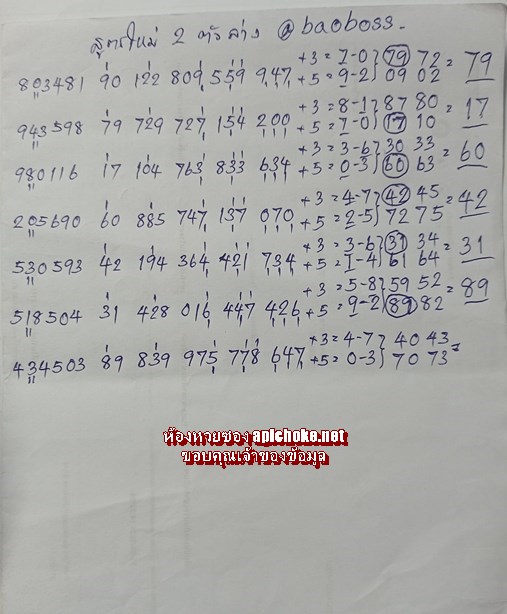 สูตรใหม่ 2 ตัวล่าง @baoboss.
+3=7-0} 79 72 = 79
803481 90 122 809 559 947 +5=9-2} 09 02
+3=8-1} 87 80 = 17
943598 79 729 727 154 200 +5=7-0} 17 10
+3=3-6} 30 33 = 60
980116 17 104 763 833 634 +5=0-3} 60 63
+3=4-7} 42 45 = 42
205690 60 885 747 137 070 +5=2-5} 72 75
+3=3-6} 31 34 = 31
530593 42 194 364 421 734 +5=1-4} 61 64
+3=5-8} 59 52 = 89
518504 31 428 016 447 426 +5=9-2} 89 82
+3=4-7} 40 43 =
434503 89 839 975 778 647 +5=0-3} 70 73
ห้องหวยซอง apichoke.net
ขอบคุณเจ้าของข้อมูล